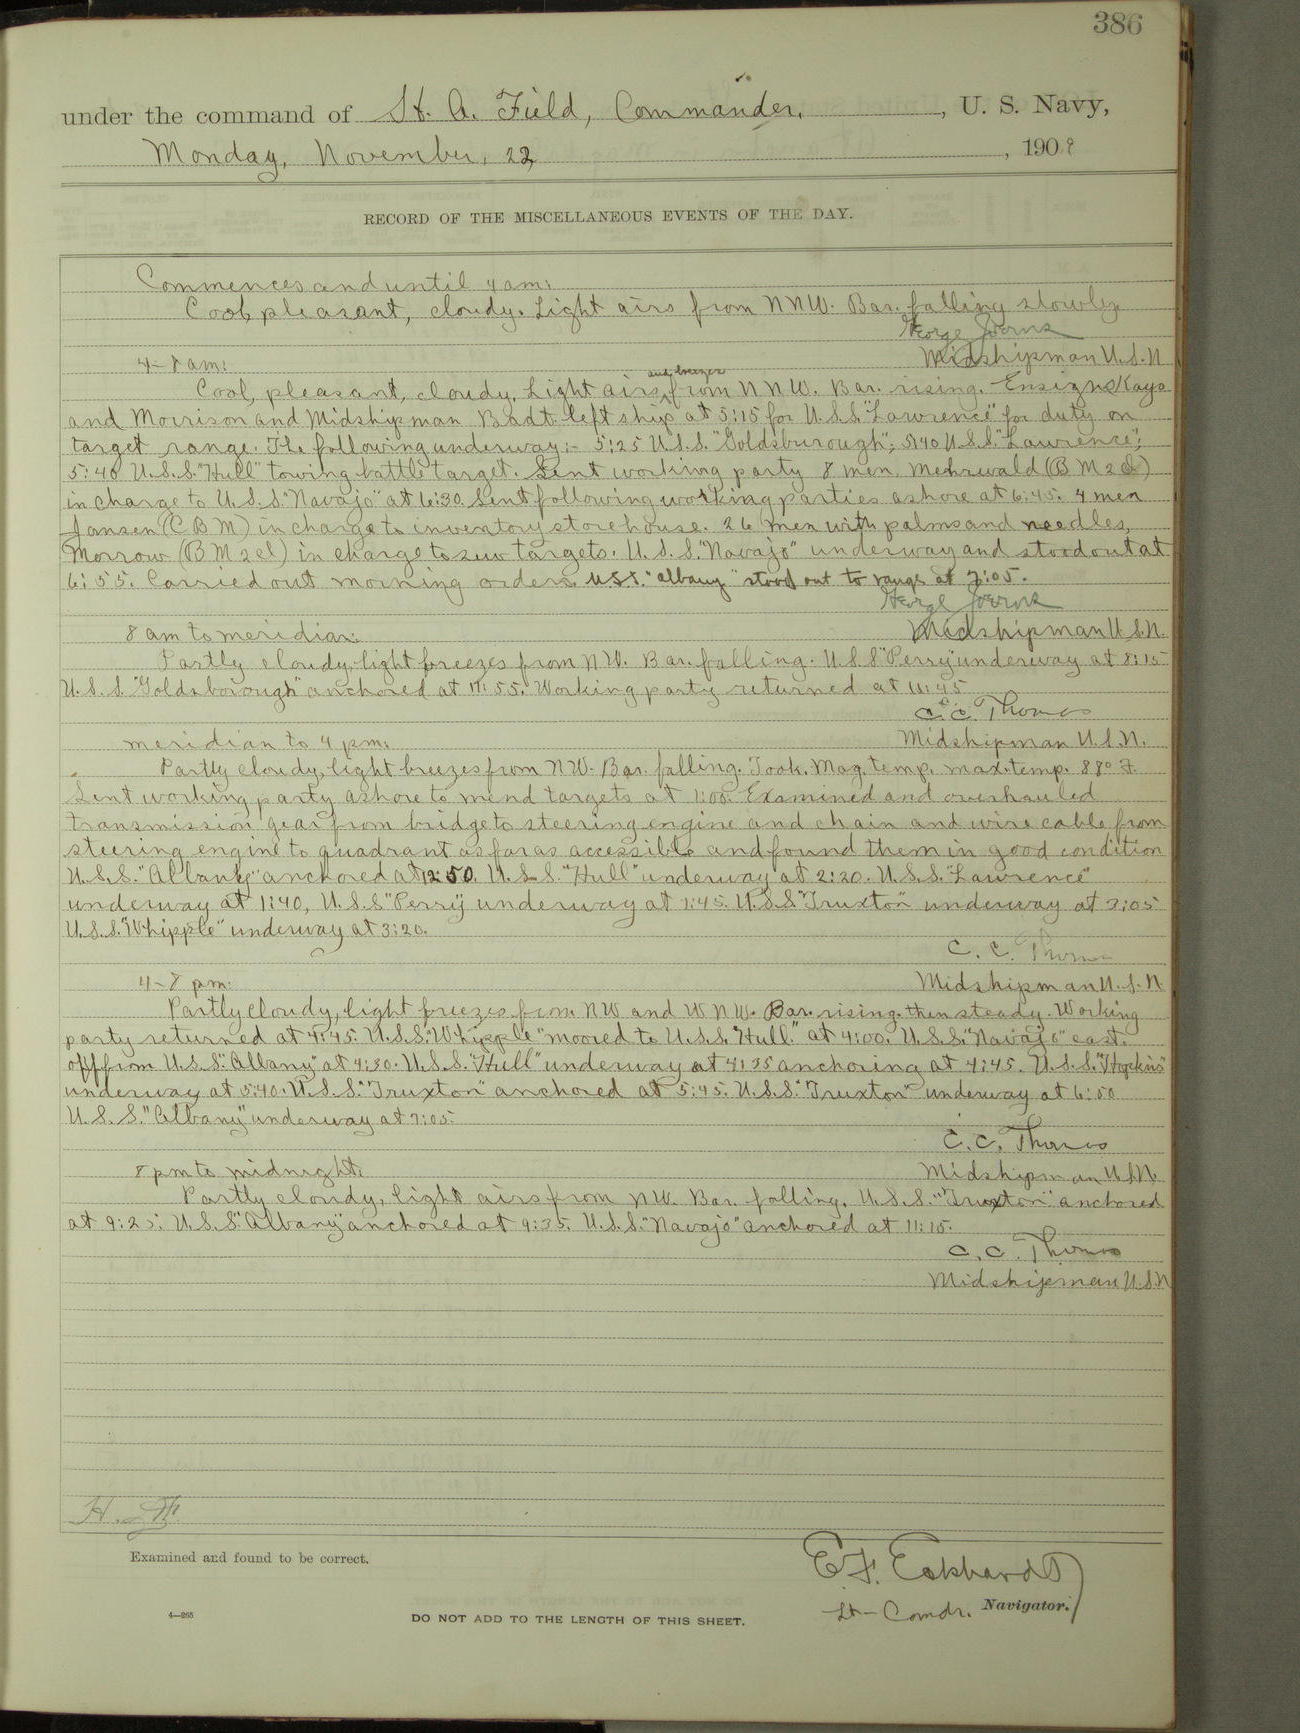 386
under the command of H. A. Field, Commander, , U. S. Navy,
Monday, November, 22 , 1909
RECORD OF THE MISCELLANEOUS EVENTS OF THE DAY.
Commences and until 4 am:
Cool, pleasant, cloudy. Light airs from NNW. Bar. falling slowly.
George
Midshipman U.S.N.
4-8 am:
and breezes
Cool, pleasant, cloudy. Light airs from NNW. Bar. rising. Ensigns Kays
and Morrison and Midshipman Badt left ship at 5:15 for U.S.S. "Lawrence" for duty on
target range. The following underway:- 5:25 U.S.S. "Goldsburough"; 5:40 U.S.S. "Lawrence";
5:40 U.S.S. "Hull" towing battle target. Sent working party 8 men, (BM2cl)
in charge to U.S.S. "Navajo" at 6:30. Sent following working parties ashore at 6:45. 4 men
Jansen (CBM) in charge to inventory storehouse. 26 men with palms and needles,
Morrow (BM2cl) in charge to sew targets. U.S.S. "Navajo" underway and stood out at
6:55. Carried out morning orders. U.S.S. "Albany" stood out to range at 7:05.
George
Midshipman U.S.N.
8 am to meridian:
Partly cloudy, light breezes from NW. Bar. falling. U.S.S. "Perry" underway at 8:15
U.S.S. "Goldsborough" anchored at 11:55. Working party returned at 11:45
C. C. Thomas
Midshipman U.S.N.
meridian to 4 pm:
Partly cloudy, light breezes from NW. Bar. falling. Took. Mag. temp. max. temp. 88° F.
Sent working party ashore to mend targets at 1:00. Examined and overhauled
transmission gear from bridge to steering engine and chain and wire cable from
steering engine to quadrant as far as accessible and found them in good condition
U.S.S. "Albany" anchored at 12:50. U.S.S. "Hull" underway at 2:20. U.S.S. "Lawrence"
underway at 1:40, U.S.S. "Perry" underway at 1:45. U.S.S. "Truxton" underway at 3:05
U.S.S. "Whipple" underway at 3:20.
C. C. Thomas
Midshipman U.S.N.
4-8 pm:
Partly cloudy, light breezes from NW and WNW. Bar. rising then steady. Working
party returned at 4:45. U.S.S. "Whipple" moored to U.S.S. "Hull." at 4:00. U.S.S. "Navajo" cast
off from U.S.S. "Albany" at 4:30. U.S.S. "Hull" underway at 4:35 anchoring at 4:45. U.S.S. "Hopkins"
underway at 5:40. U.S.S. "Truxton" anchored at 5:45. U.S.S. "Truxton" underway at 6:50
U.S.S. "Albany" underway at 7:05.
C. C. Thomas
Midshipman U.S.N.
8 pm to midnight:
Partly cloudy, light airs from NW. Bar. falling. U.S.S. "Truxton" anchored
at 9:25. U.S.S. "Albany" anchored at 9:35. U.S.S. "Navajo" anchored at 11:15.
C. C. Thomas
Midshipman U.S.N.
Examined and found to be correct.
E. F. Eckhardt
Lt-Comdr. Navigator.
4—265
DO NOT ADD TO THE LENGTH OF THIS SHEET.